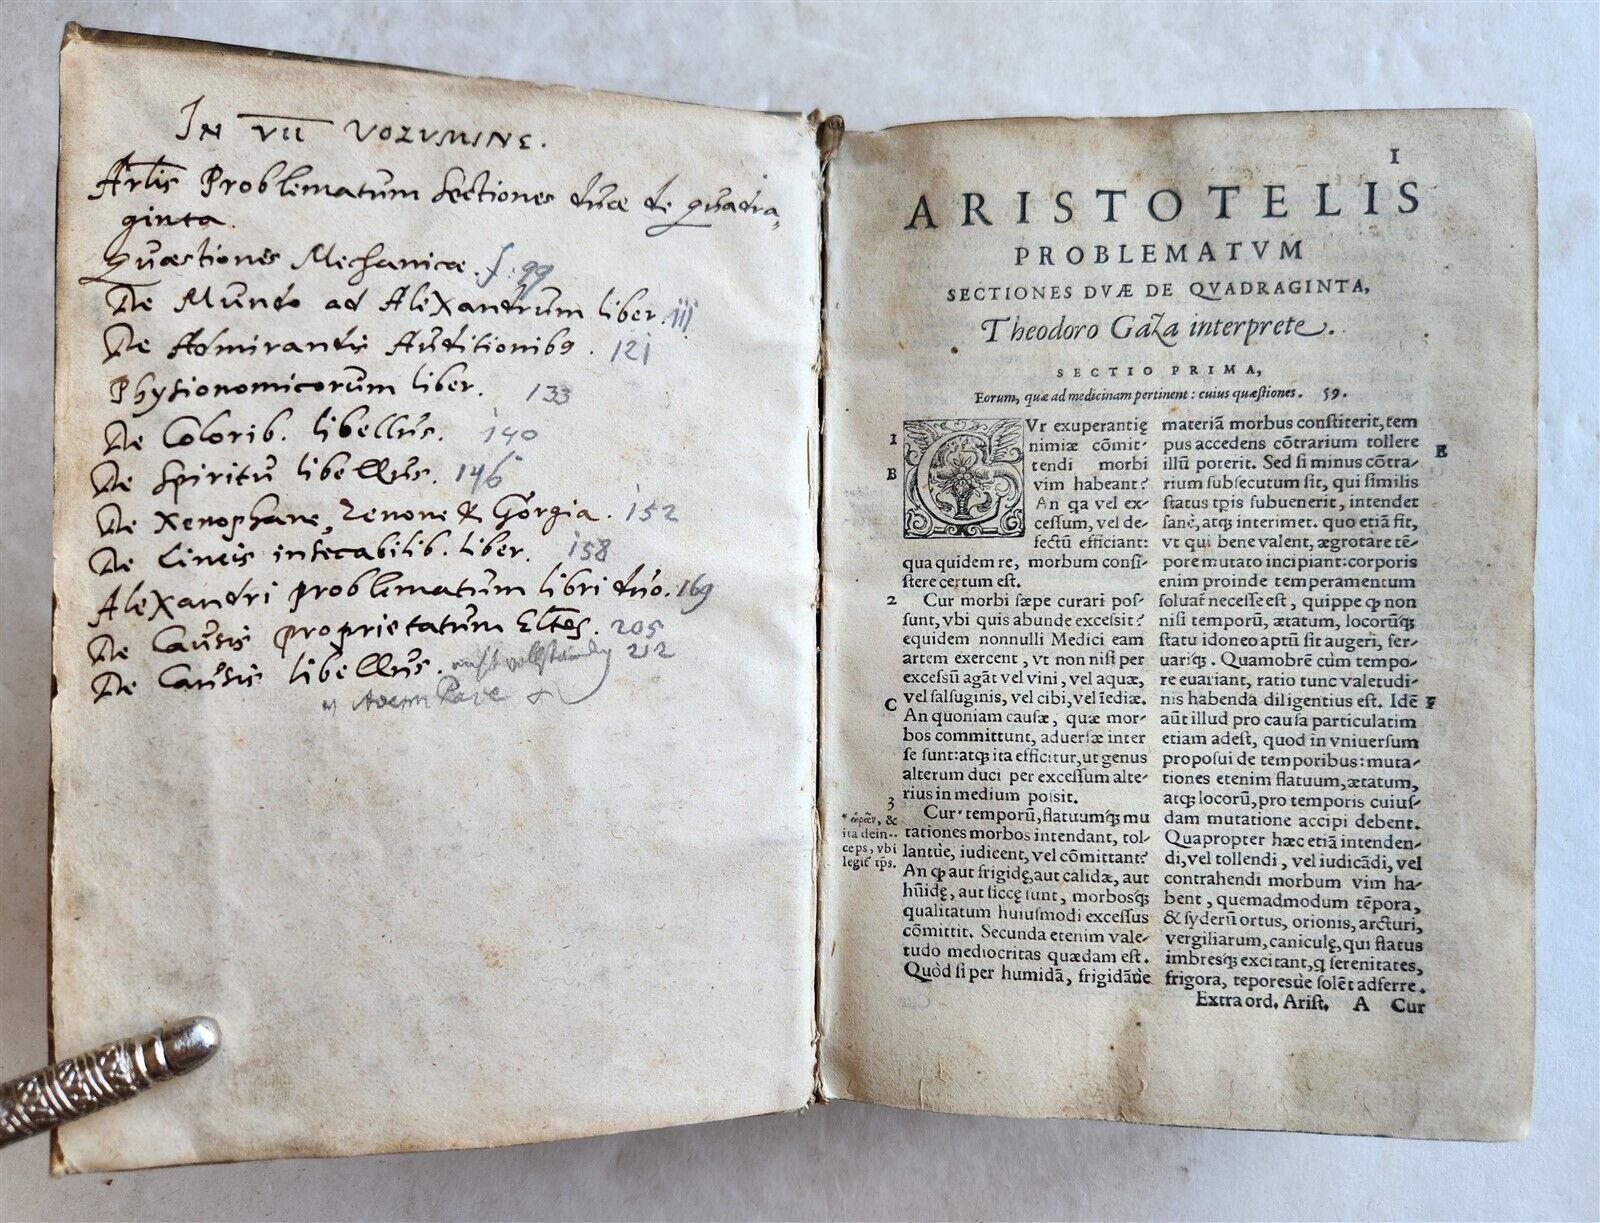 IN VII VOLVMINE.
Arlis Problematum Sectiones duæ de quadra,
ginta.
Quæstiones Mechanicæ. f. 99
De Mundo ad Alexandrum liber. 111
De Admirandis Auditionib9. 121
Physionomicorum liber. 133
De Colorib. libellus. 140
De Spiritu libellus. 146
De Xenophane, Zenone & Gorgia. 152
De Lineis insecabilib. liber. 158
Alexandri problematum libri duo. 169
De Causis proprietatum Eltōs. 205
De Causis libellus. nicht vollständig 212
1
ARISTOTELIS
PROBLEMATVM
SECTIONES DVÆ DE QVADRAGINTA,
Theodoro Gaza interprete.
SECTIO PRIMA,
Eorum, quæ ad medicinam pertinent: cuius quæstiones. 59.
1
B
CVr exuperantię
nimiæ cōmit-
tendi morbi
vim habeant?
An qa vel ex-
cessum, vel de-
fectū efficiant:
qua quidem re, morbum consi-
stere certum est.
2 Cur morbi sæpe curari pos-
sunt, vbi quis abunde excessit?
equidem nonnulli Medici eam
artem exercent, vt non nisi per
excessū agāt vel vini, vel aquæ,
C vel salsuginis, vel cibi, vel īediæ.
An quoniam causæ, quæ mor-
bos committunt, aduersæ inter
se sunt: atq; ita efficitur, ut genus
alterum duci per excessum alte-
rius in medium possit.
3
Cur * temporū, flatuumq́; mu
tationes morbos intendant, tol-
lantùe, iudicent, vel cōmittant?
An q̃ aut frigidę, aut calidæ, aut
hūidę, aut siccę sunt, morbosq́;
qualitatum huiusmodi excessus
cōmittit. Secunda etenim vale-
tudo mediocritas quædam est.
Quòd si per humidā, frigidāùe
* ὡρῶν, &
ita dein-
ceps, vbi
legit tp̄s.
materiā morbus constiterit, tem
pus accedens cōtrarium tollere
E
illū poterit. Sed si minus cōtra-
rium subsecutum sit, qui similis
status tp̄is subuenerit, intendet
sanè, atq; interimet. quo etiā fit,
vt qui bene valent, ægrotare tē-
pore mutato incipiant: corporis
enim proinde temperamentum
soluat́ necesse est, quippe q̃ non
nisi temporū, ætatum, locorūq́;
statu idoneo aptū sit augeri, fer-
uariq́;. Quamobrē cùm tempo-
re euariant, ratio tunc valetudi-
nis habenda diligentius est. Idē F
aūt illud pro causa particulatim
etiam adest, quod in vniuersum
proposui de temporibus: muta-
tiones etenim flatuum, ætatum,
atq; locorū, pro temporis cuius-
dam mutatione accipi debent.
Quapropter hæc etiā intenden-
di, vel tollendi, vel iudicādi, vel
contrahendi morbum vim ha-
bent, quemadmodum tēpora,
& syderū ortus, orionis, arcturi,
vergiliarum, caniculę, qui flatus
imbresq́; excitant, q̃ serenitates,
frigora, teporesùe solēt adferre.
Extraord. Arist. A Cur